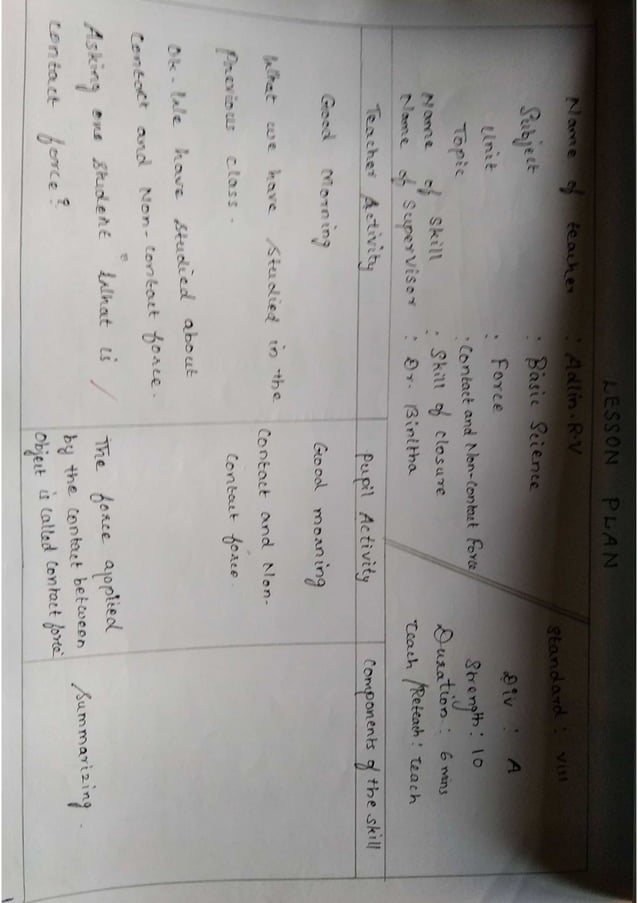 LESSON PLAN
Name of teacher : Adlin.R.V
Standard : VIII
Subject : Basic Science
Div : A
Unit : Force
Strength : 10
Topic : Contact and Non-contact Force
Duration : 6 mins
Name of Skill : Skill of closure
Teach/Reteach : Teach
Name of Supervisor : Dr. Binitha
Teacher Activity
Pupil Activity
Components of the skill
Good Morning
Good morning
What we have studied in the
Previous class.
Contact and Non-
contact force.
Ok. We have studied about
contact and Non-contact force.
Asking one student "What is
contact force?
The force applied
by the contact between
object is called contact force
Summarizing.